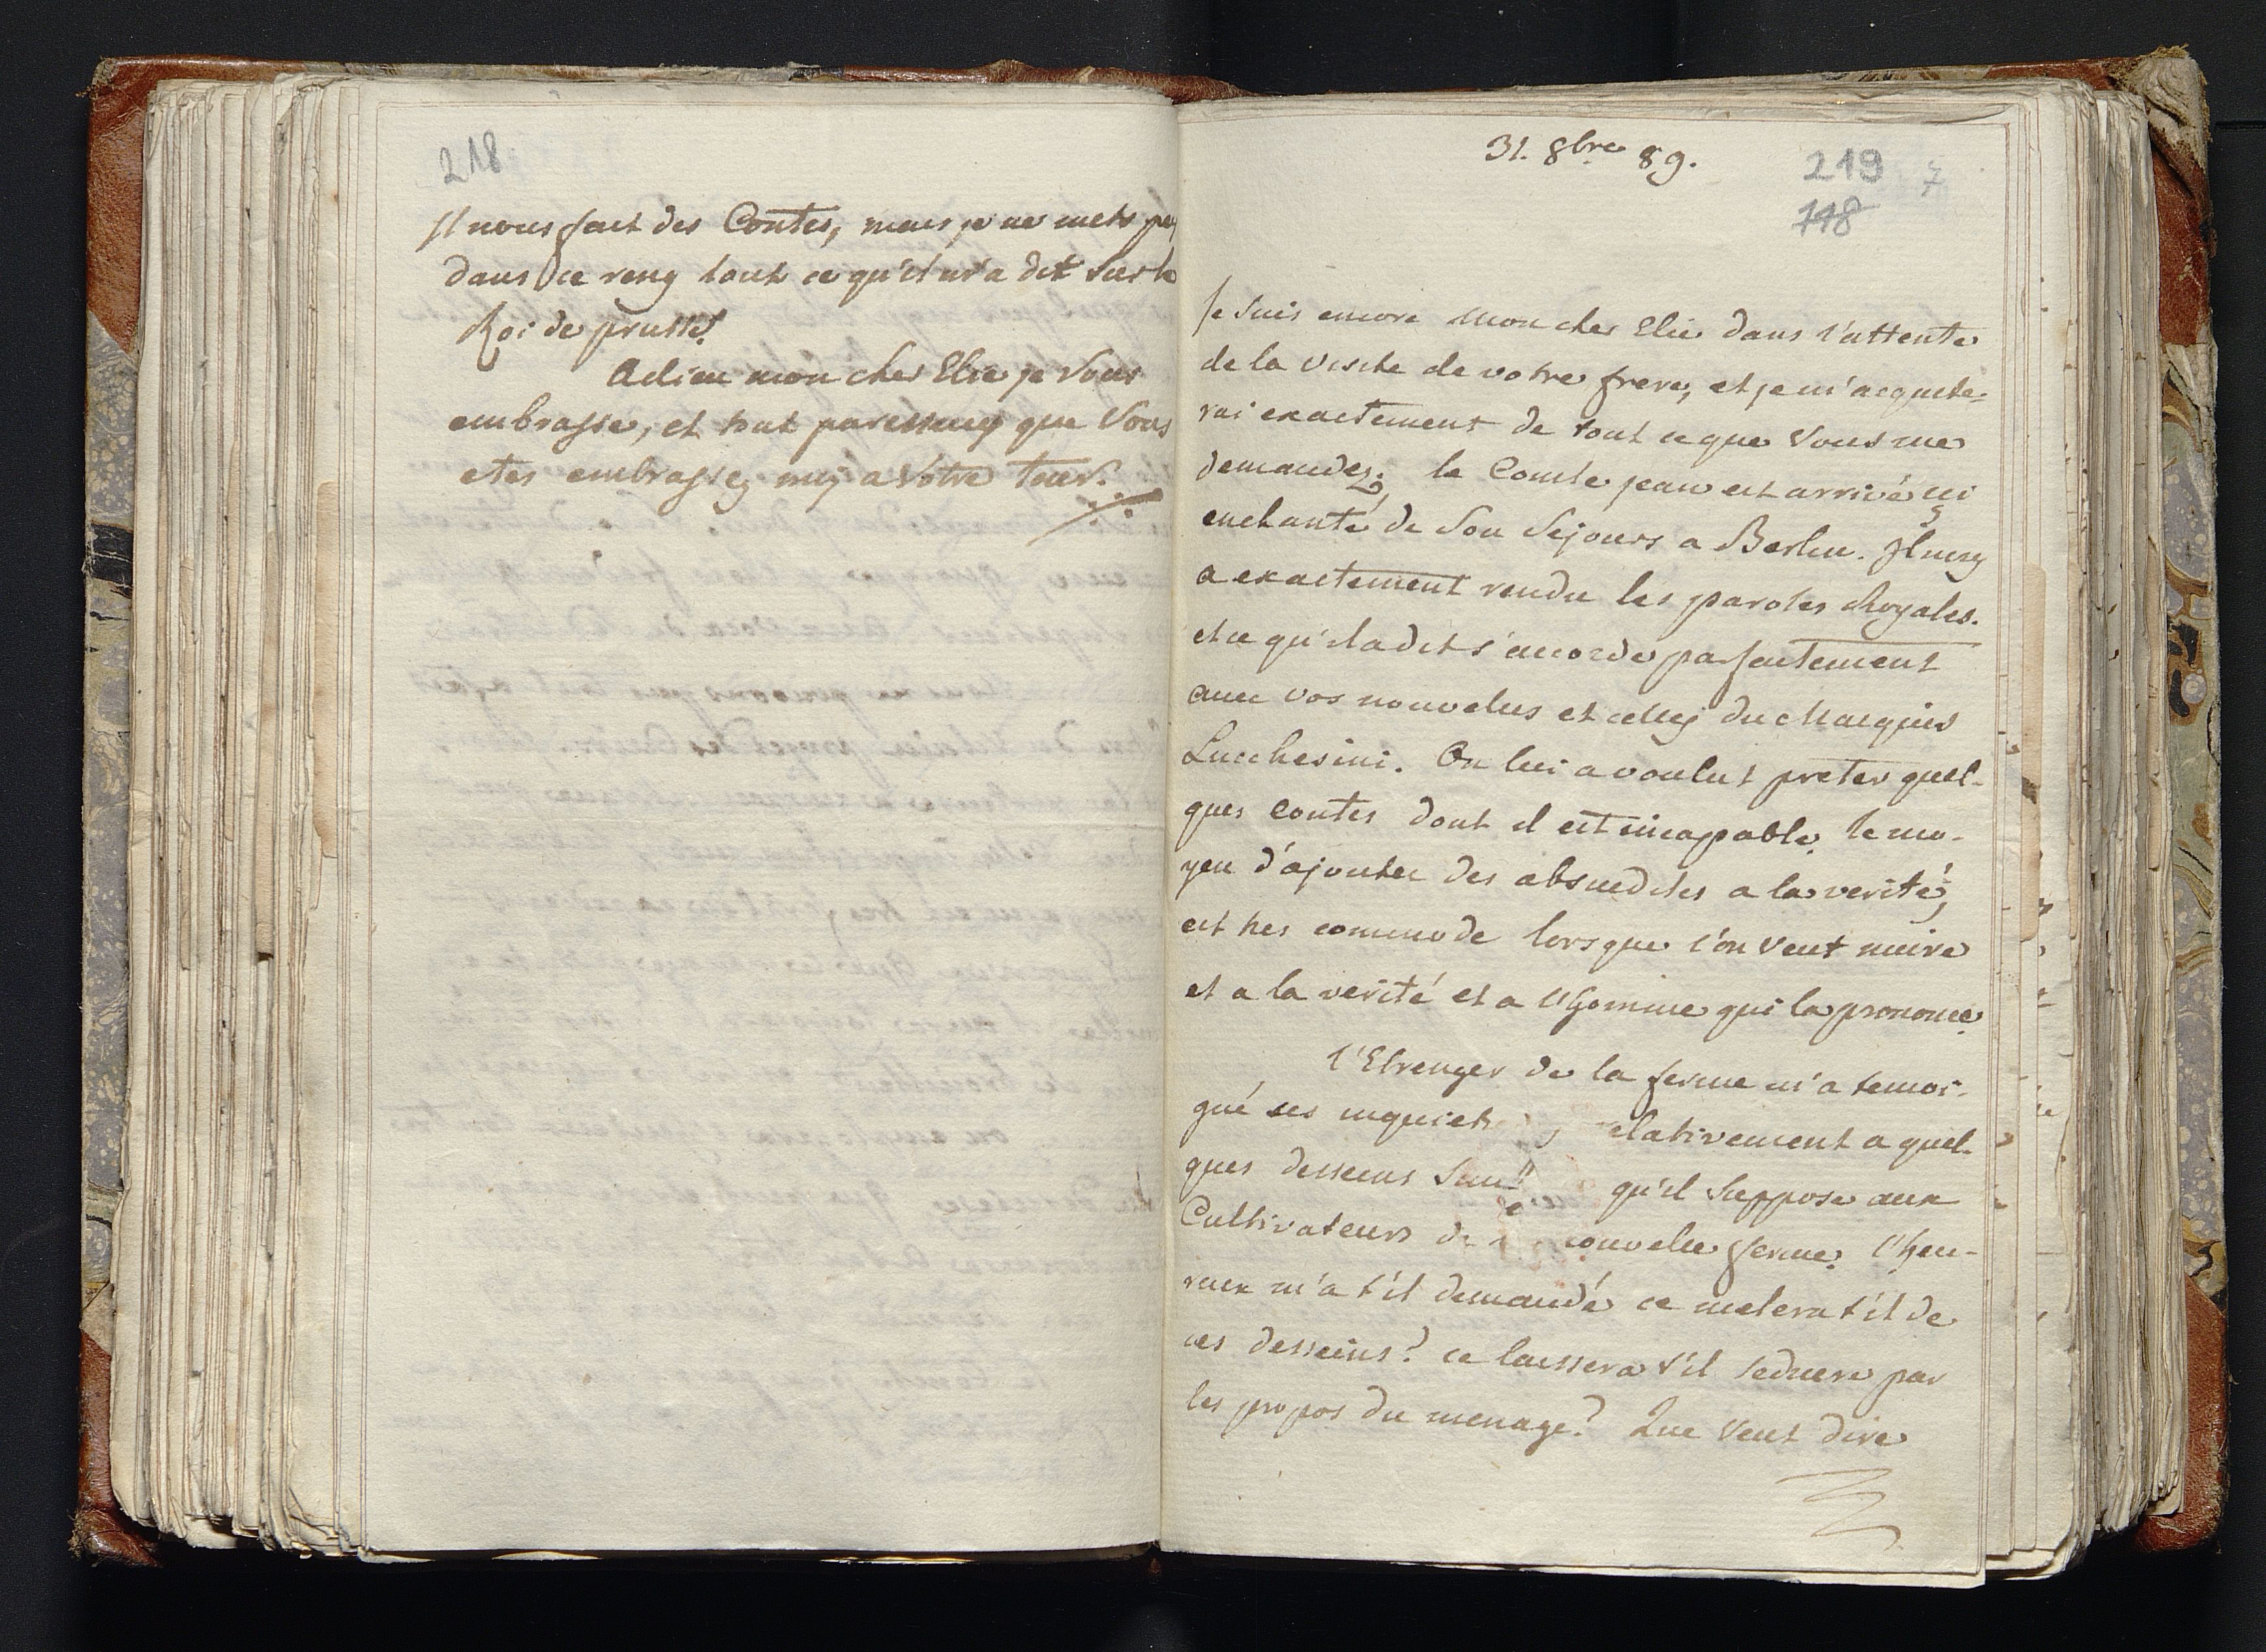 218
Il nous fait des Contes, mais je ne mets pas
dans ce reng tout ce qu'il m'a dit sur le
Roi de prusse.
Adieu mon cher Elie je vous
embrasse, et tout paresseux que vous
etes embrassez moi a votre tour.
31. 8bre 89.
219 7
118
Je suis encore mon cher Elie dans l'attente
de la visite de votre frere, et je m'acquite-
rai exactement de tout ce que vous me
demandez; le Comte jean est arrivé ici
enchanté de son sejours a Berlin. Il
a exactement rendu les paroles Royales.
et ce qu'il a dit s'accorde parfaitement
avec vos nouvelles et celles du Marquis
Lucchesini. On lui a voulut preter quel-
ques contes dont il est incapable. le mo-
yen d'ajouter des absurdites a la verité,
est tres commode lorsque l'on veut nuire
et a la verité et a l'homme qui la prononce.
l'Etrenger de la ferme m'a temoi-
gné ses inquiet elativement a quel-
ques desseins qu'il suppose aux
Cultivateurs de nouvelle ferme. l'heu-
reux m'a t'il demandé ce melera t'il de
ces desseins? ce laissera t'il seduire par
les propos du menage? Que veut dire